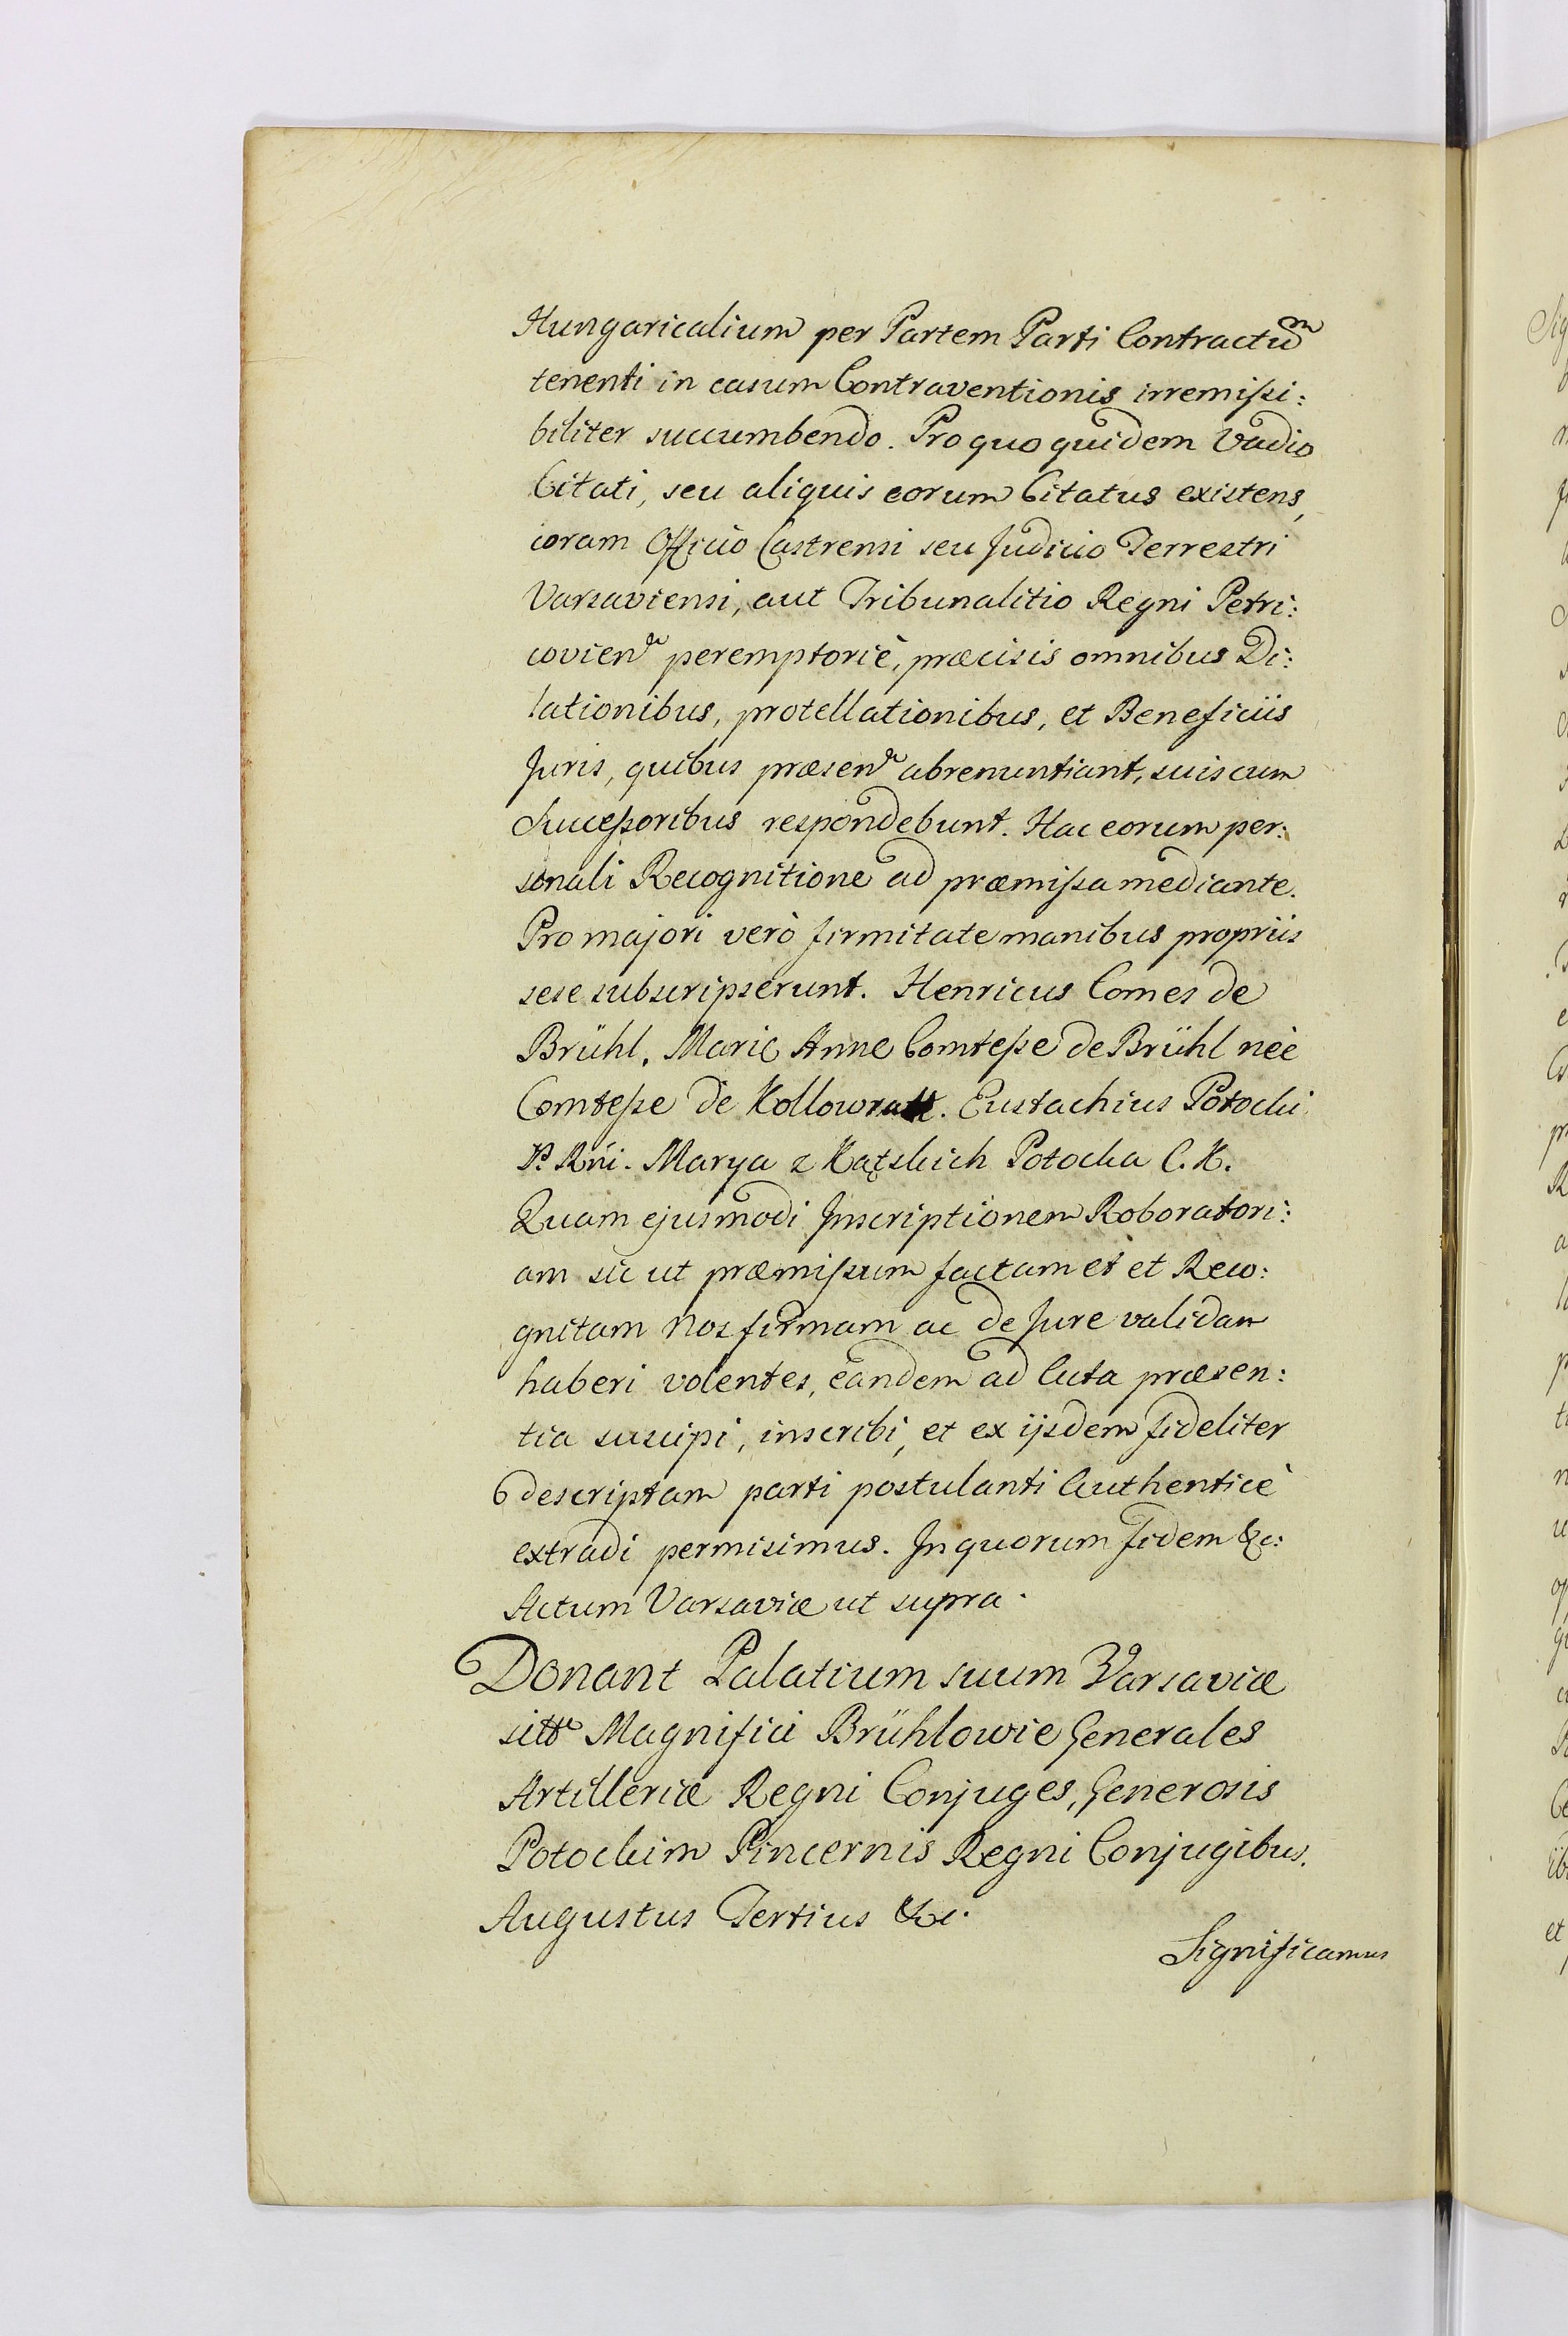 Hungaricalium per Partem Parti Contractũm
tenenti in casum Contraventionis irremissi:
biliter succumbendo. Pro quo quidem Vadio
Citati, seu aliquis eorum Citatus existens,
coram Officio Castrensi seu Judicio Terrestri
Varsaviensi, aut Tribunalitio Regni Petri:
covien. peremptoriè, præcisis omnibus Di:
lationibus, protellationibus, et Beneficiis
Juris, quibus præsen. abrenuntiant, suis cum
Successoribus respondebunt. Hac eorum per:
sonali Recognitione ad præmissa mediante.
Pro majori verò firmitate manibus propriis
sese subscripserunt. Henricus Comes de
Brühl. Marie Anne Comtesse de Brühl nèe
Comtesse de Kollowratt. Eustachius Potocki
P. Rni. Marya z Kątskich Potocka C. K.
Quam ejusmodi Inscriptionem Roboratori:
am sic ut præmissum factam et et Reco:
gnitam Nos firmam ac de Jure validam
haberi volentes, eandem ad Acta præsen:
tia suscipi, inscribi, et ex ijsdem fideliter
descriptam parti postulanti Authenticè
extradi permisimus. In quorum fidem &c:
Actum Varsaviæ ut supra.
Donant Palatium suum Varsaviæ
sittũ Magnifici Brühlowie Generales
Artilleriæ Regni Conjuges, Generosis
Potockim Pincernis Regni Conjugibus.
Augustus Tertius &c.
Significamus